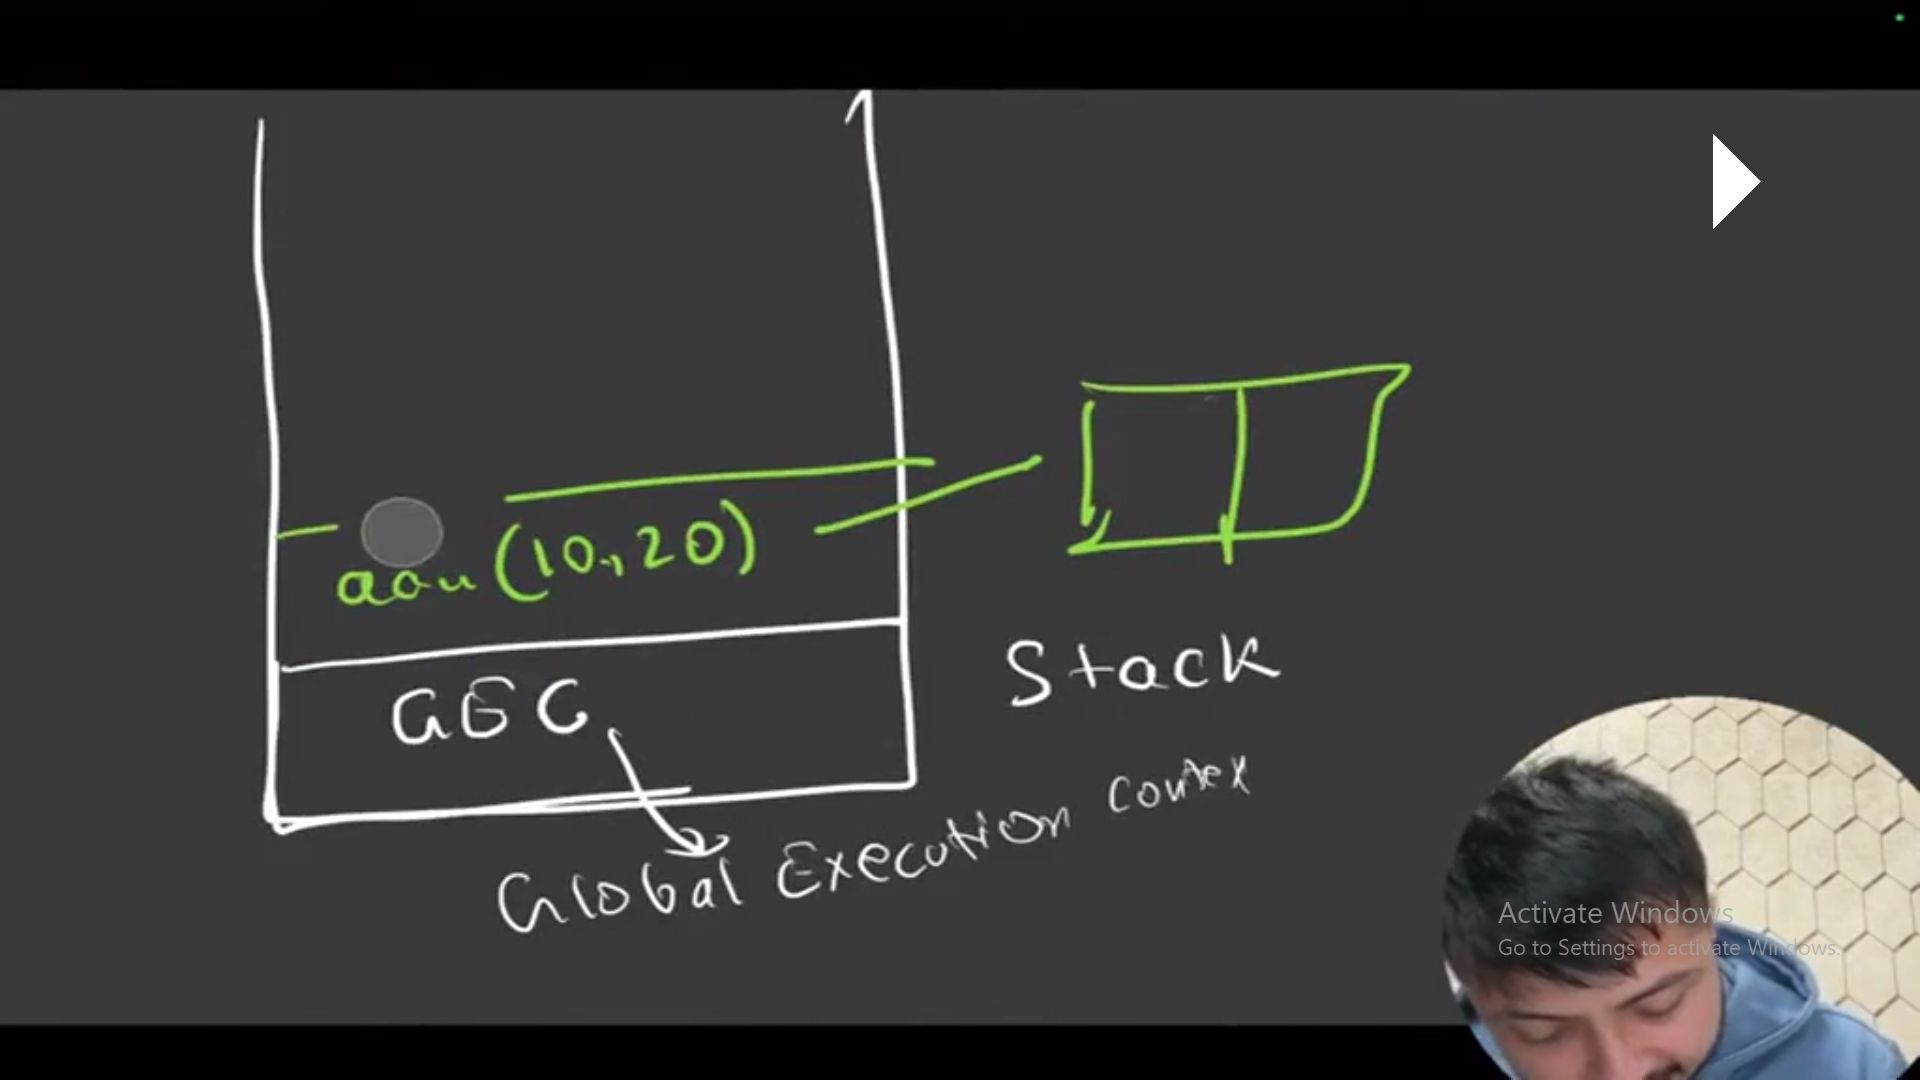 (10,20)
GEC
Stack
Global Execution contex
Activate Windows
Go to Settings to activate Windows.